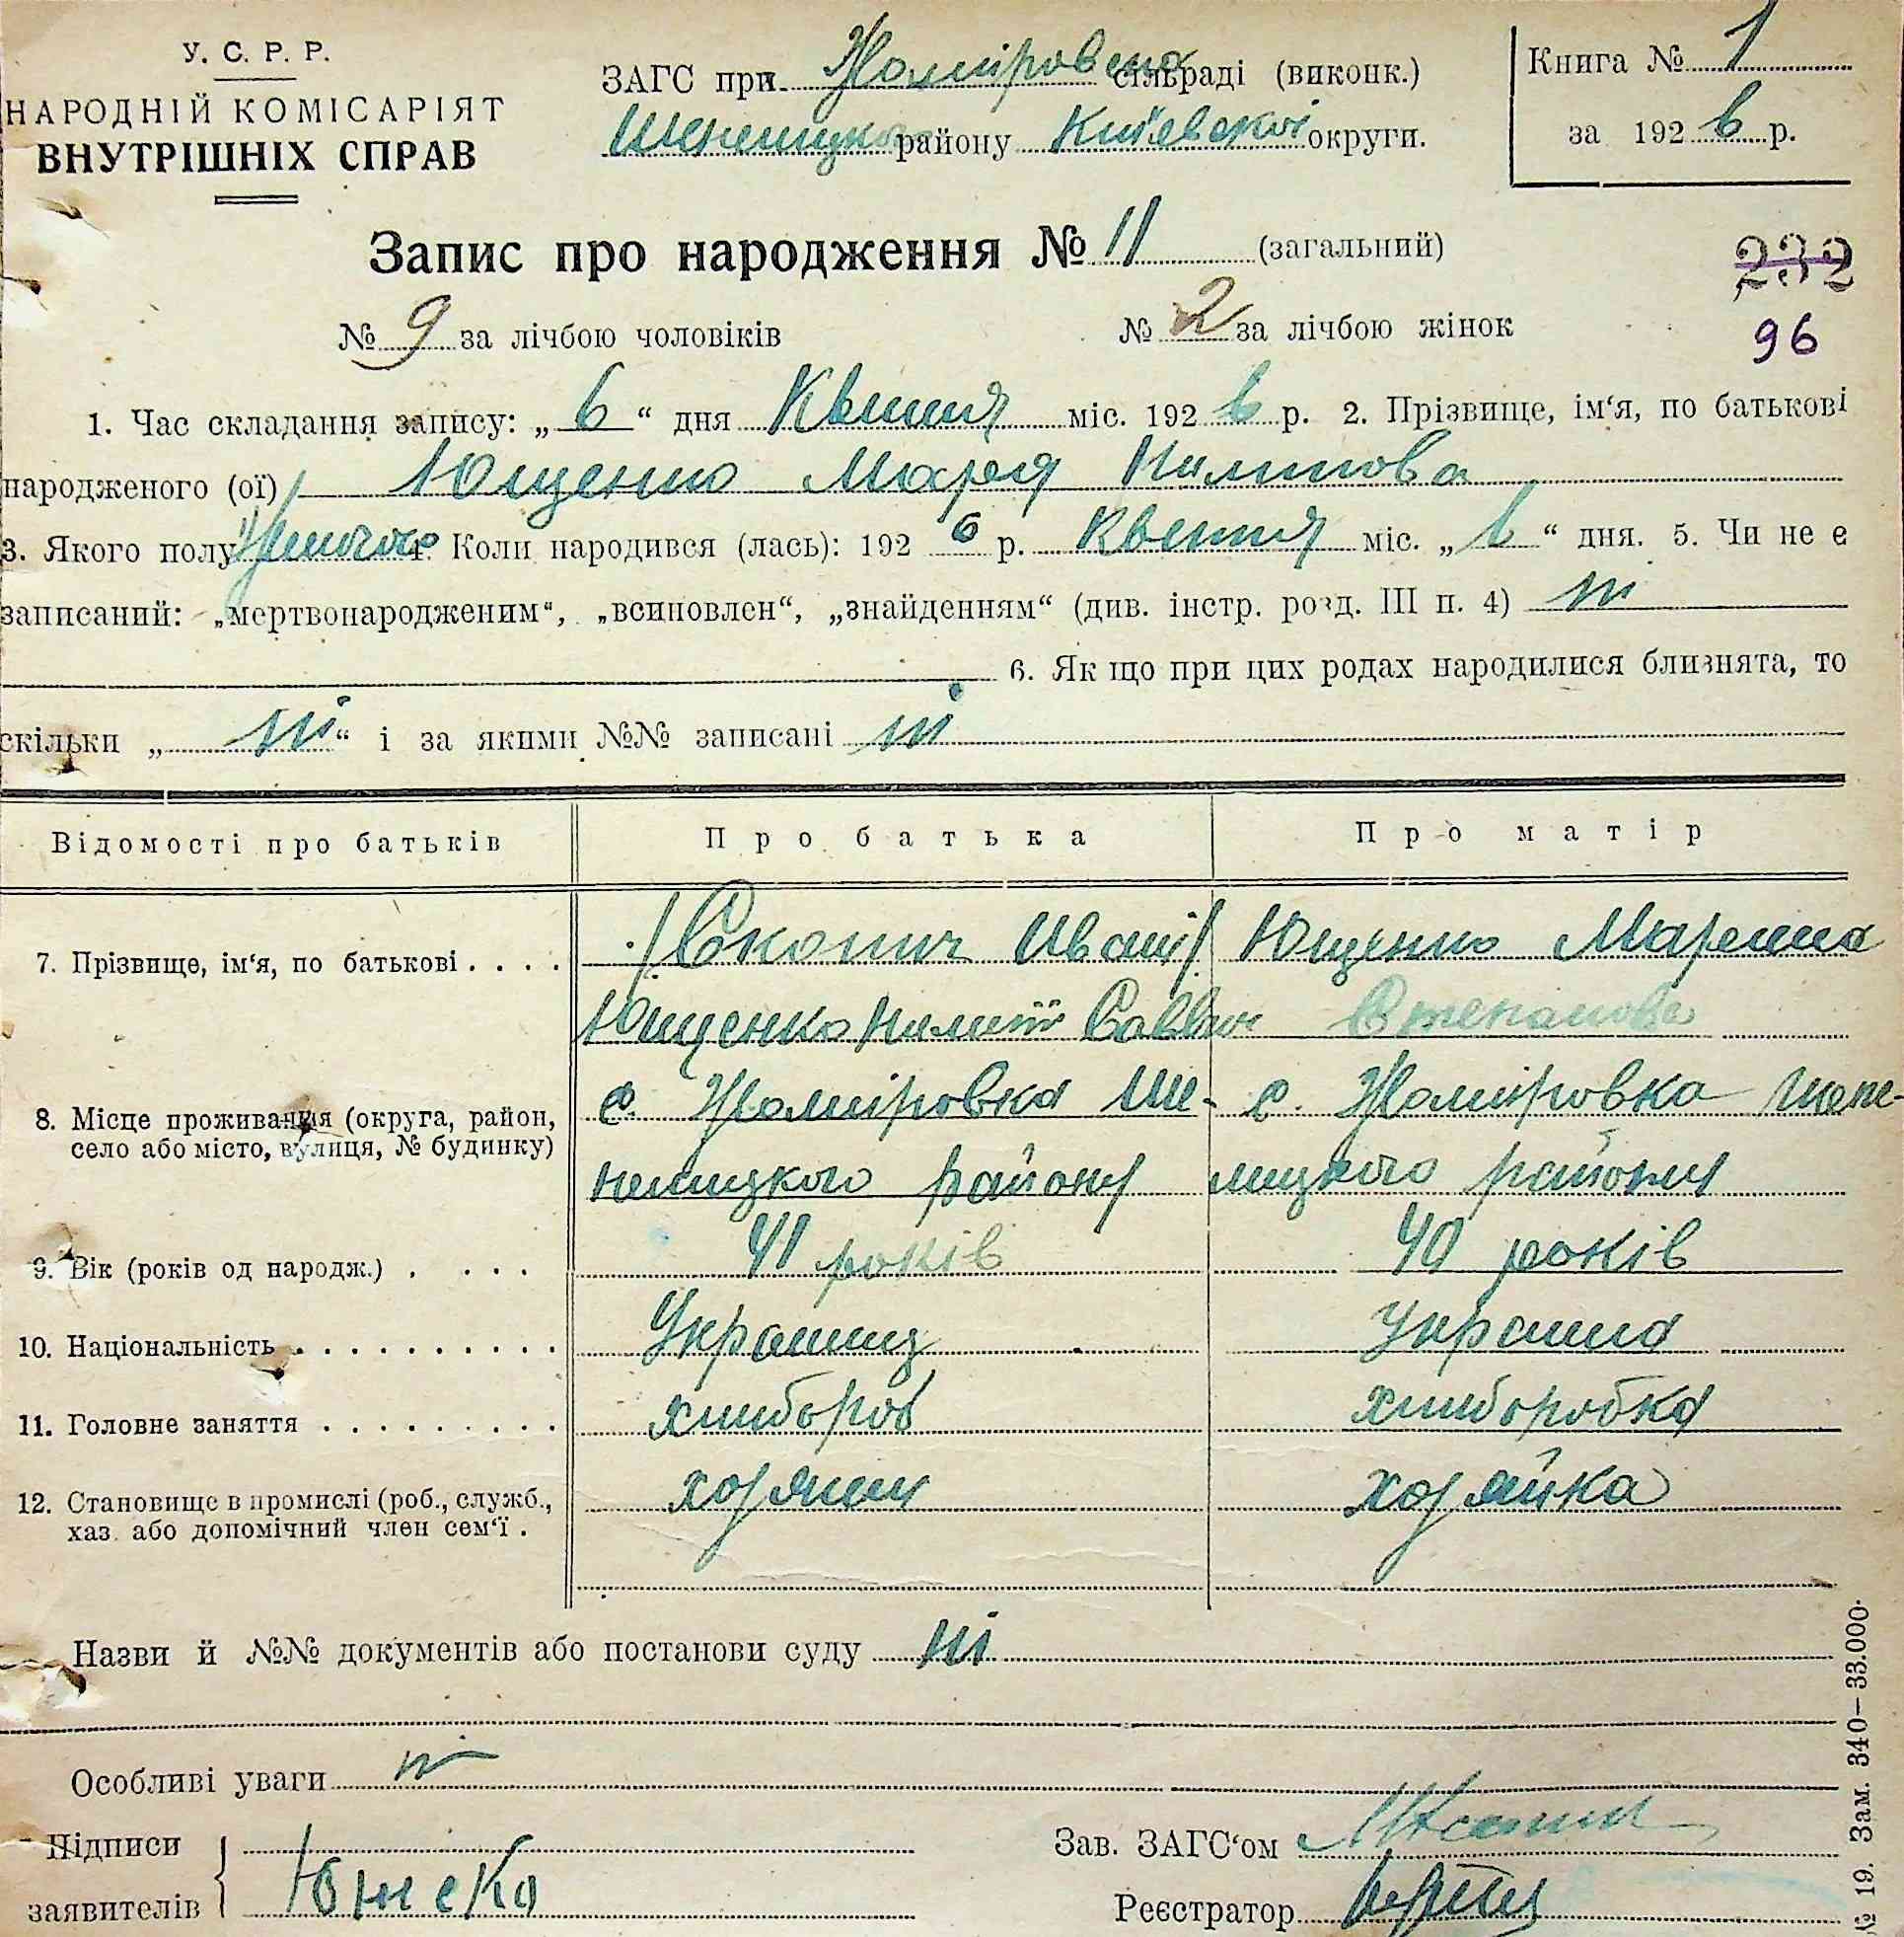 У. С. Р. Р.
НАРОДНІЙ КОМІСАРІЯТ
ВНУТРІШНІХ СПРАВ
ЗАГС при сільраді (виконк.)
району Київської округи.
Книга № 1
за 1926 р.
Запис про народження № 11 (загальний)
232
№ 9 за лічбою чоловіків № 2 за лічбою жінок
96
1. Час складання запису: „ 6 “ дня Квітня міс. 1926 р. 2. Прізвище, ім‘я, по батькові
народженого (ої) Ющенко Марія
3. Якого полу жіночого 4. Коли народився (лась): 1926 р. Квітня міс. „ 6 “ дня. 5. Чи не є
записаний: „мертвонародженим“, „всиновлен“, „знайденням“ (див. інстр. розд. III п. 4) ні
6. Як що при цих родах народилися близнята, то
скільки „ ні “ і за якими №№ записані ні
Відомості про батьків Про батька Про матір
7. Прізвище, ім‘я, по батькові . . . . Ющенко
Ющенко Саввич Степанова
8. Місце проживання (округа, район,
село або місто, вулиця, № будинку)
с. с.
району району
9. Вік (років од народж.) . . . . 41 років 40 років
10. Національність . . . . . . . . . . Українец Україна
11. Головне заняття . . . . . . . . . хлібороб хліборобка
12. Становище в промислі (роб., служб.,
хаз. або допомічний член сем‘ї .
хозяїн хозяйка
Назви й №№ документів або постанови суду ні
Особливі уваги ні
Підписи
заявителів
Зав. ЗАГС‘ом
Реєстратор
№ 19. Зам. 340–33.000.